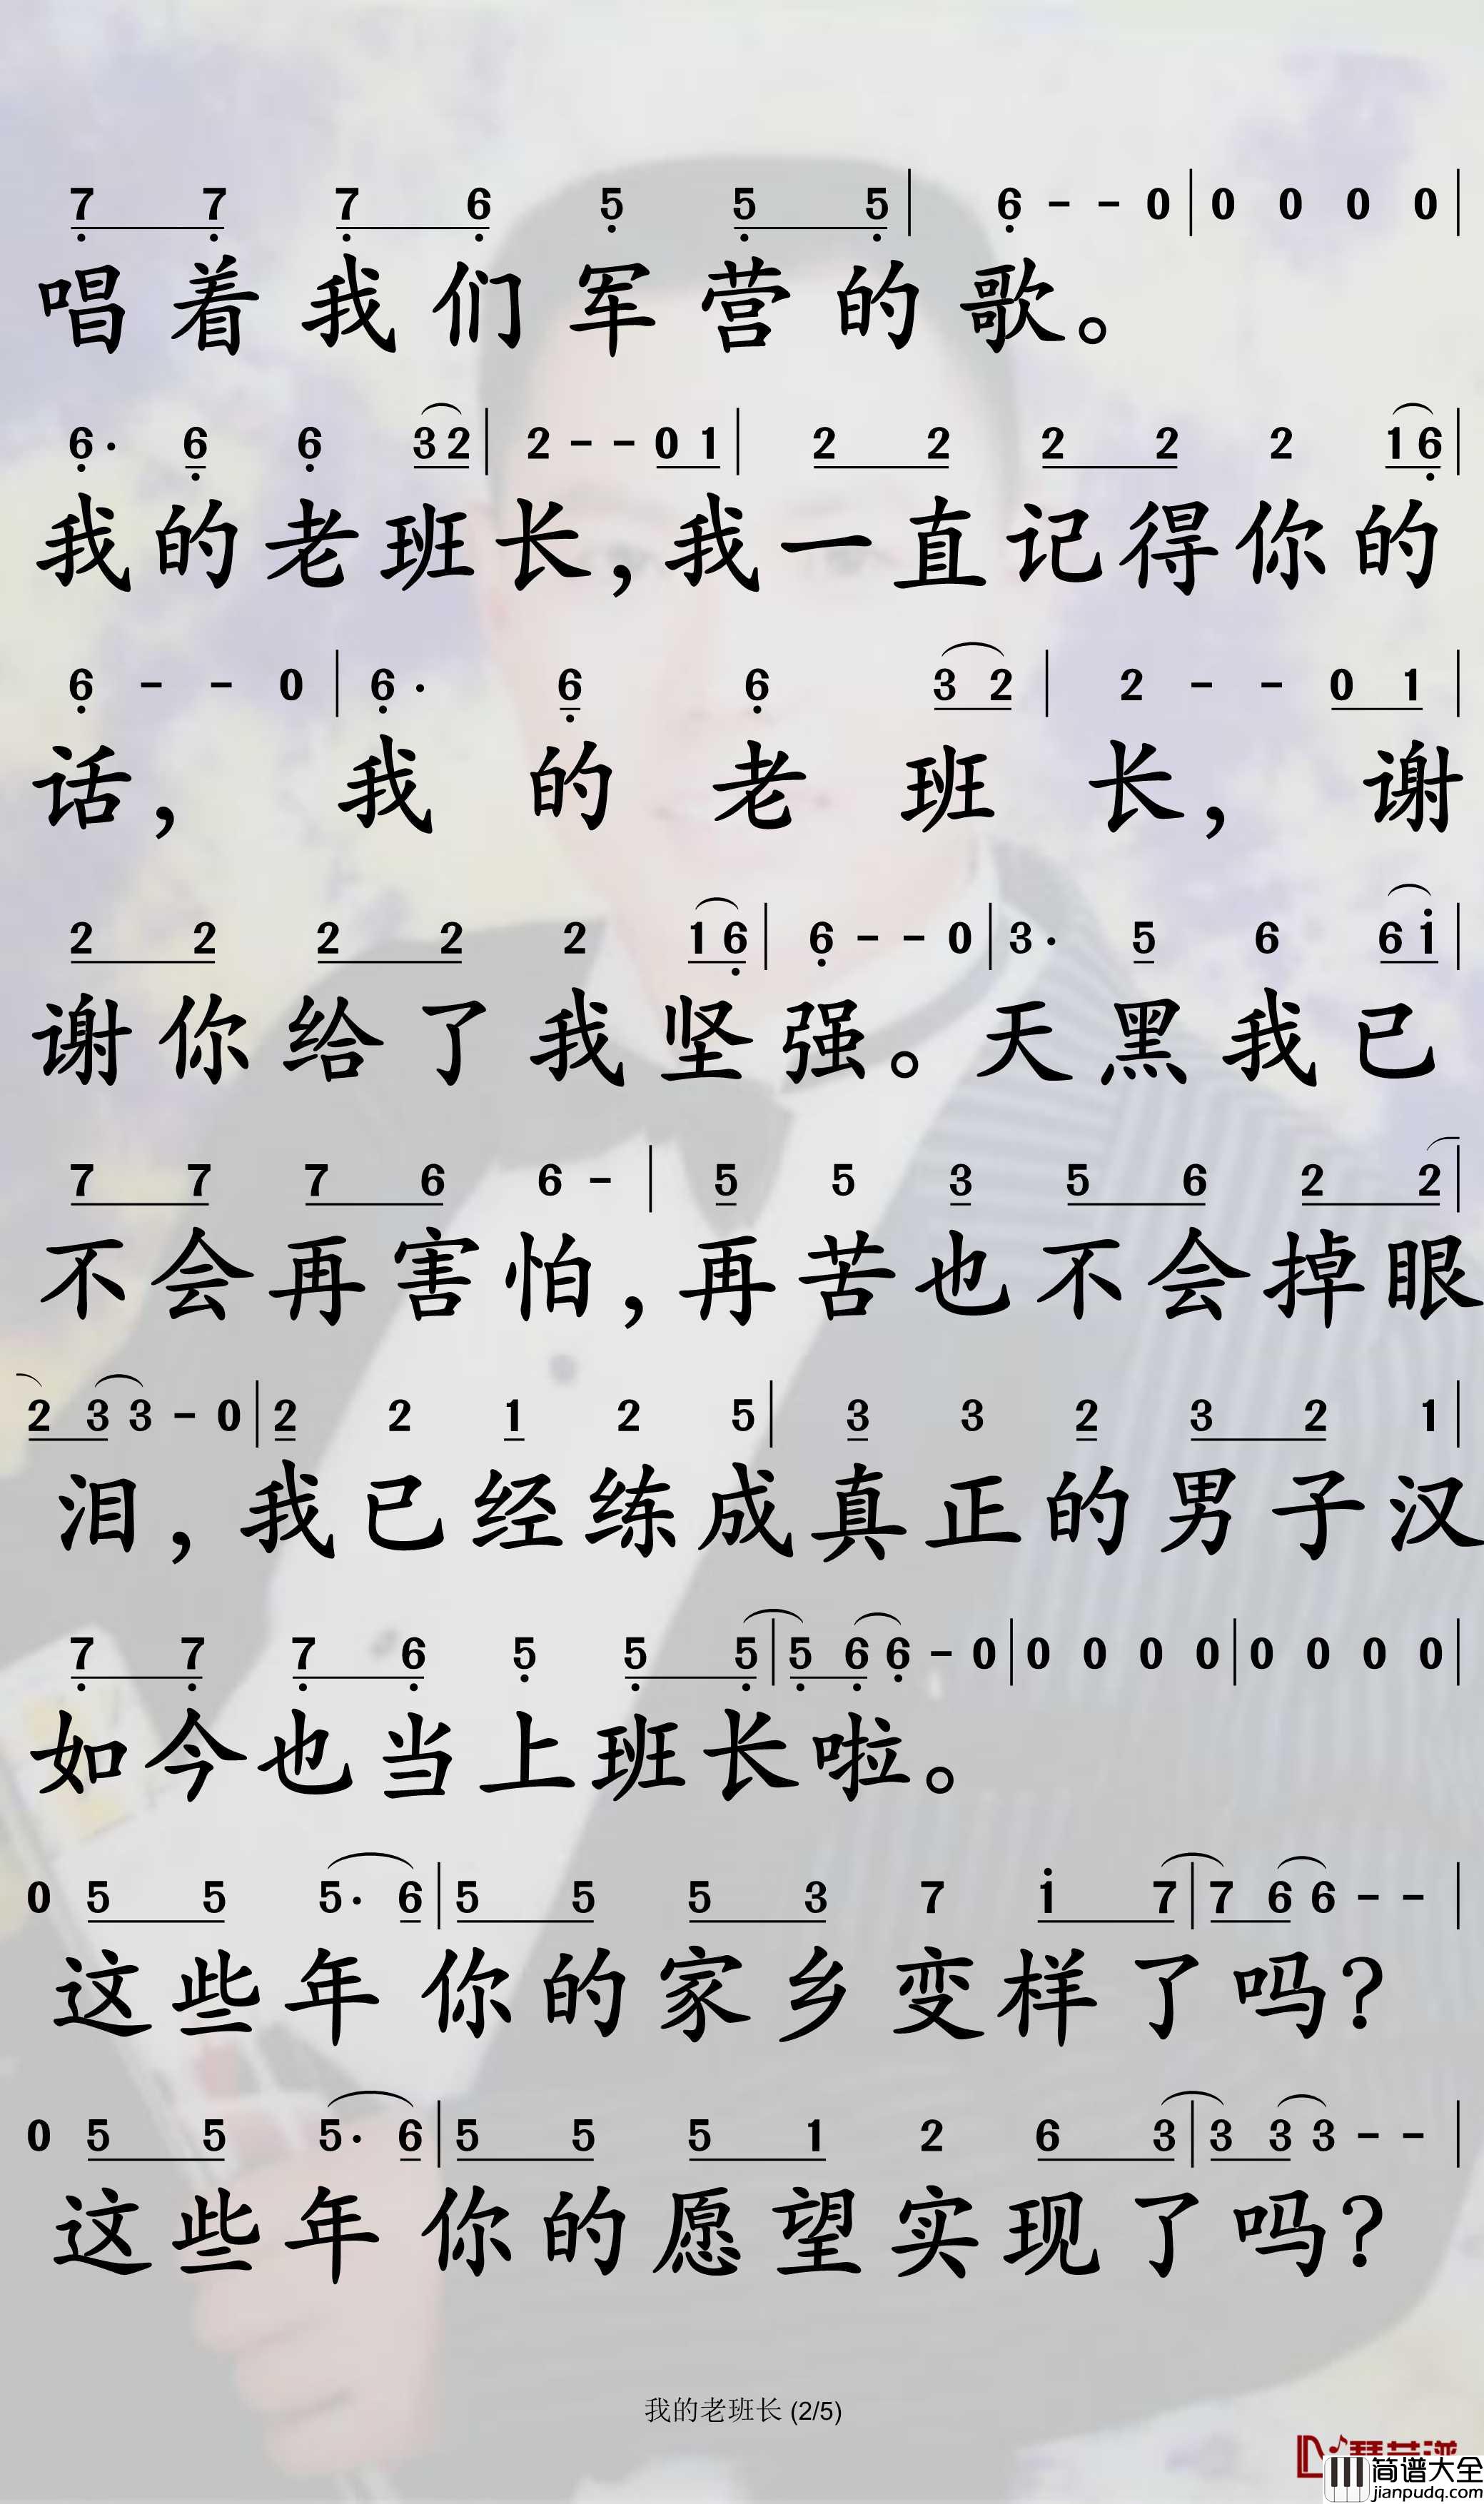 7 7 7 6 5 5 5 | 6 - - 0 | 0 0 0 0 |
唱着我们军营的歌。
6· 6 6 3 2 | 2 - - 0 1 | 2 2 2 2 2 1 6 |
我的老班长,我一直记得你的
6 - - 0 | 6· 6 6 3 2 | 2 - - 0 1 |
话,我的老班长,谢
2 2 2 2 2 1 6 | 6 - - 0 | 3· 5 6 6 i |
谢你给了我坚强。天黑我已
7 7 7 6 6 - | 5 5 3 5 6 2 2 |
不会再害怕,再苦也不会掉眼
2 3 3 - 0 | 2 2 1 2 5 | 3 3 2 3 2 1 |
泪,我已经练成真正的男子汉
7 7 7 6 5 5 5 | 5 6 6 - 0 | 0 0 0 0 | 0 0 0 0 |
如今也当上班长啦。
0 5 5 5· 6 | 5 5 5 3 7 i 7 | 7 6 6 - - |
这些年你的家乡变样了吗?
0 5 5 5· 6 | 5 5 5 1 2 6 3 | 3 3 3 - - |
这些年你的愿望实现了吗?
我的老班长 (2/5)
简谱大全
jianpudq.com